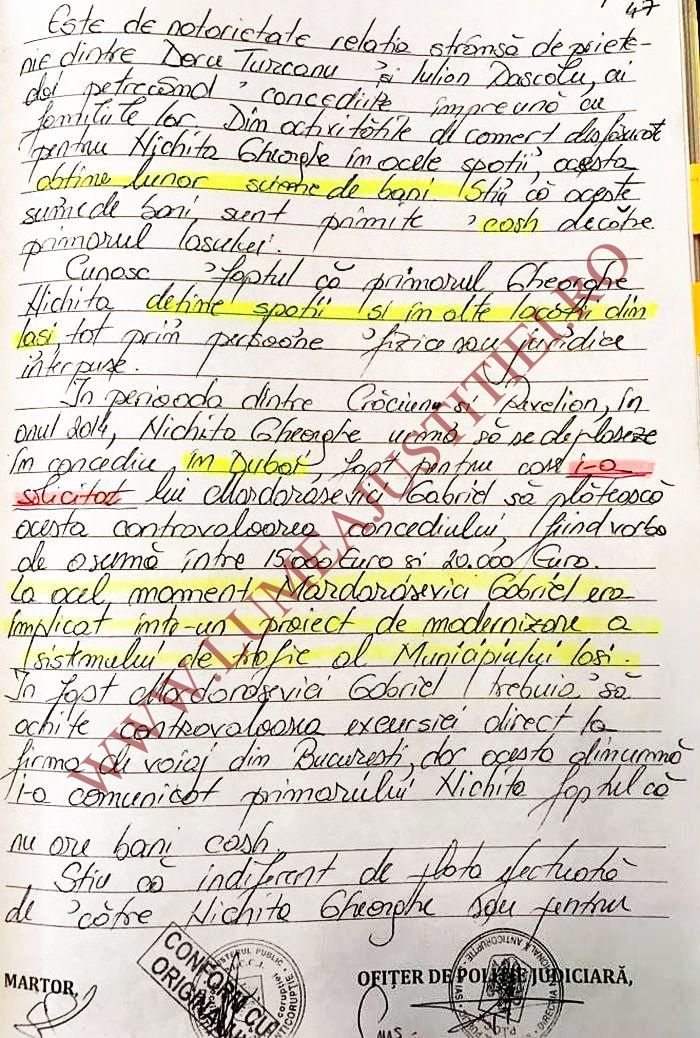 47
Este de notorietate relația strânsă de priete-
nie dintre Doru Țurcanu și Iulian Dascălu, cei
doi petrecând concediile împreună cu
familiile lor. Din activitățile de comerț desfășurat
pentru Nichita Gheorghe în acele spații, acesta
obține lunar sume de bani. Știu că aceste
sume de bani, sunt primite cash de către
primarul Iașului.
Cunosc faptul că primarul Gheorghe
Nichita deține spații și în alte locații din
Iași, tot prin persoane fizice sau juridice
interpuse.
În perioada dintre Crăciun și Revelion, în
anul 2014, Nichita Gheorghe urma să se deplaseze
în concediu, în Dubai, fapt pentru care i-a
solicitat lui Mardarasevici Gabriel să plătească
acesta contravaloarea concediului, fiind vorba
de o sumă între 15.000 Euro și 20.000 Euro.
La acel moment Mardarasevici Gabriel era
implicat într-un proiect de modernizare a
sistemului de trafic al Municipiului Iași.
În fapt Mardarasevici Gabriel trebuia să
achite contravaloarea excursiei direct la
firma de voiaj din București, dar acesta din urmă
i-a comunicat primarului Nichita faptul că
nu are bani cash.
Știu că indiferent de plata efectuată
de către Nichita Gheorghe sau pentru
MARTOR,
OFIȚER DE POLIȚIE JUDICIARĂ,
CONFORM CU
ORIGINALUL
WWW.LUMEAJUSTITIEI.RO